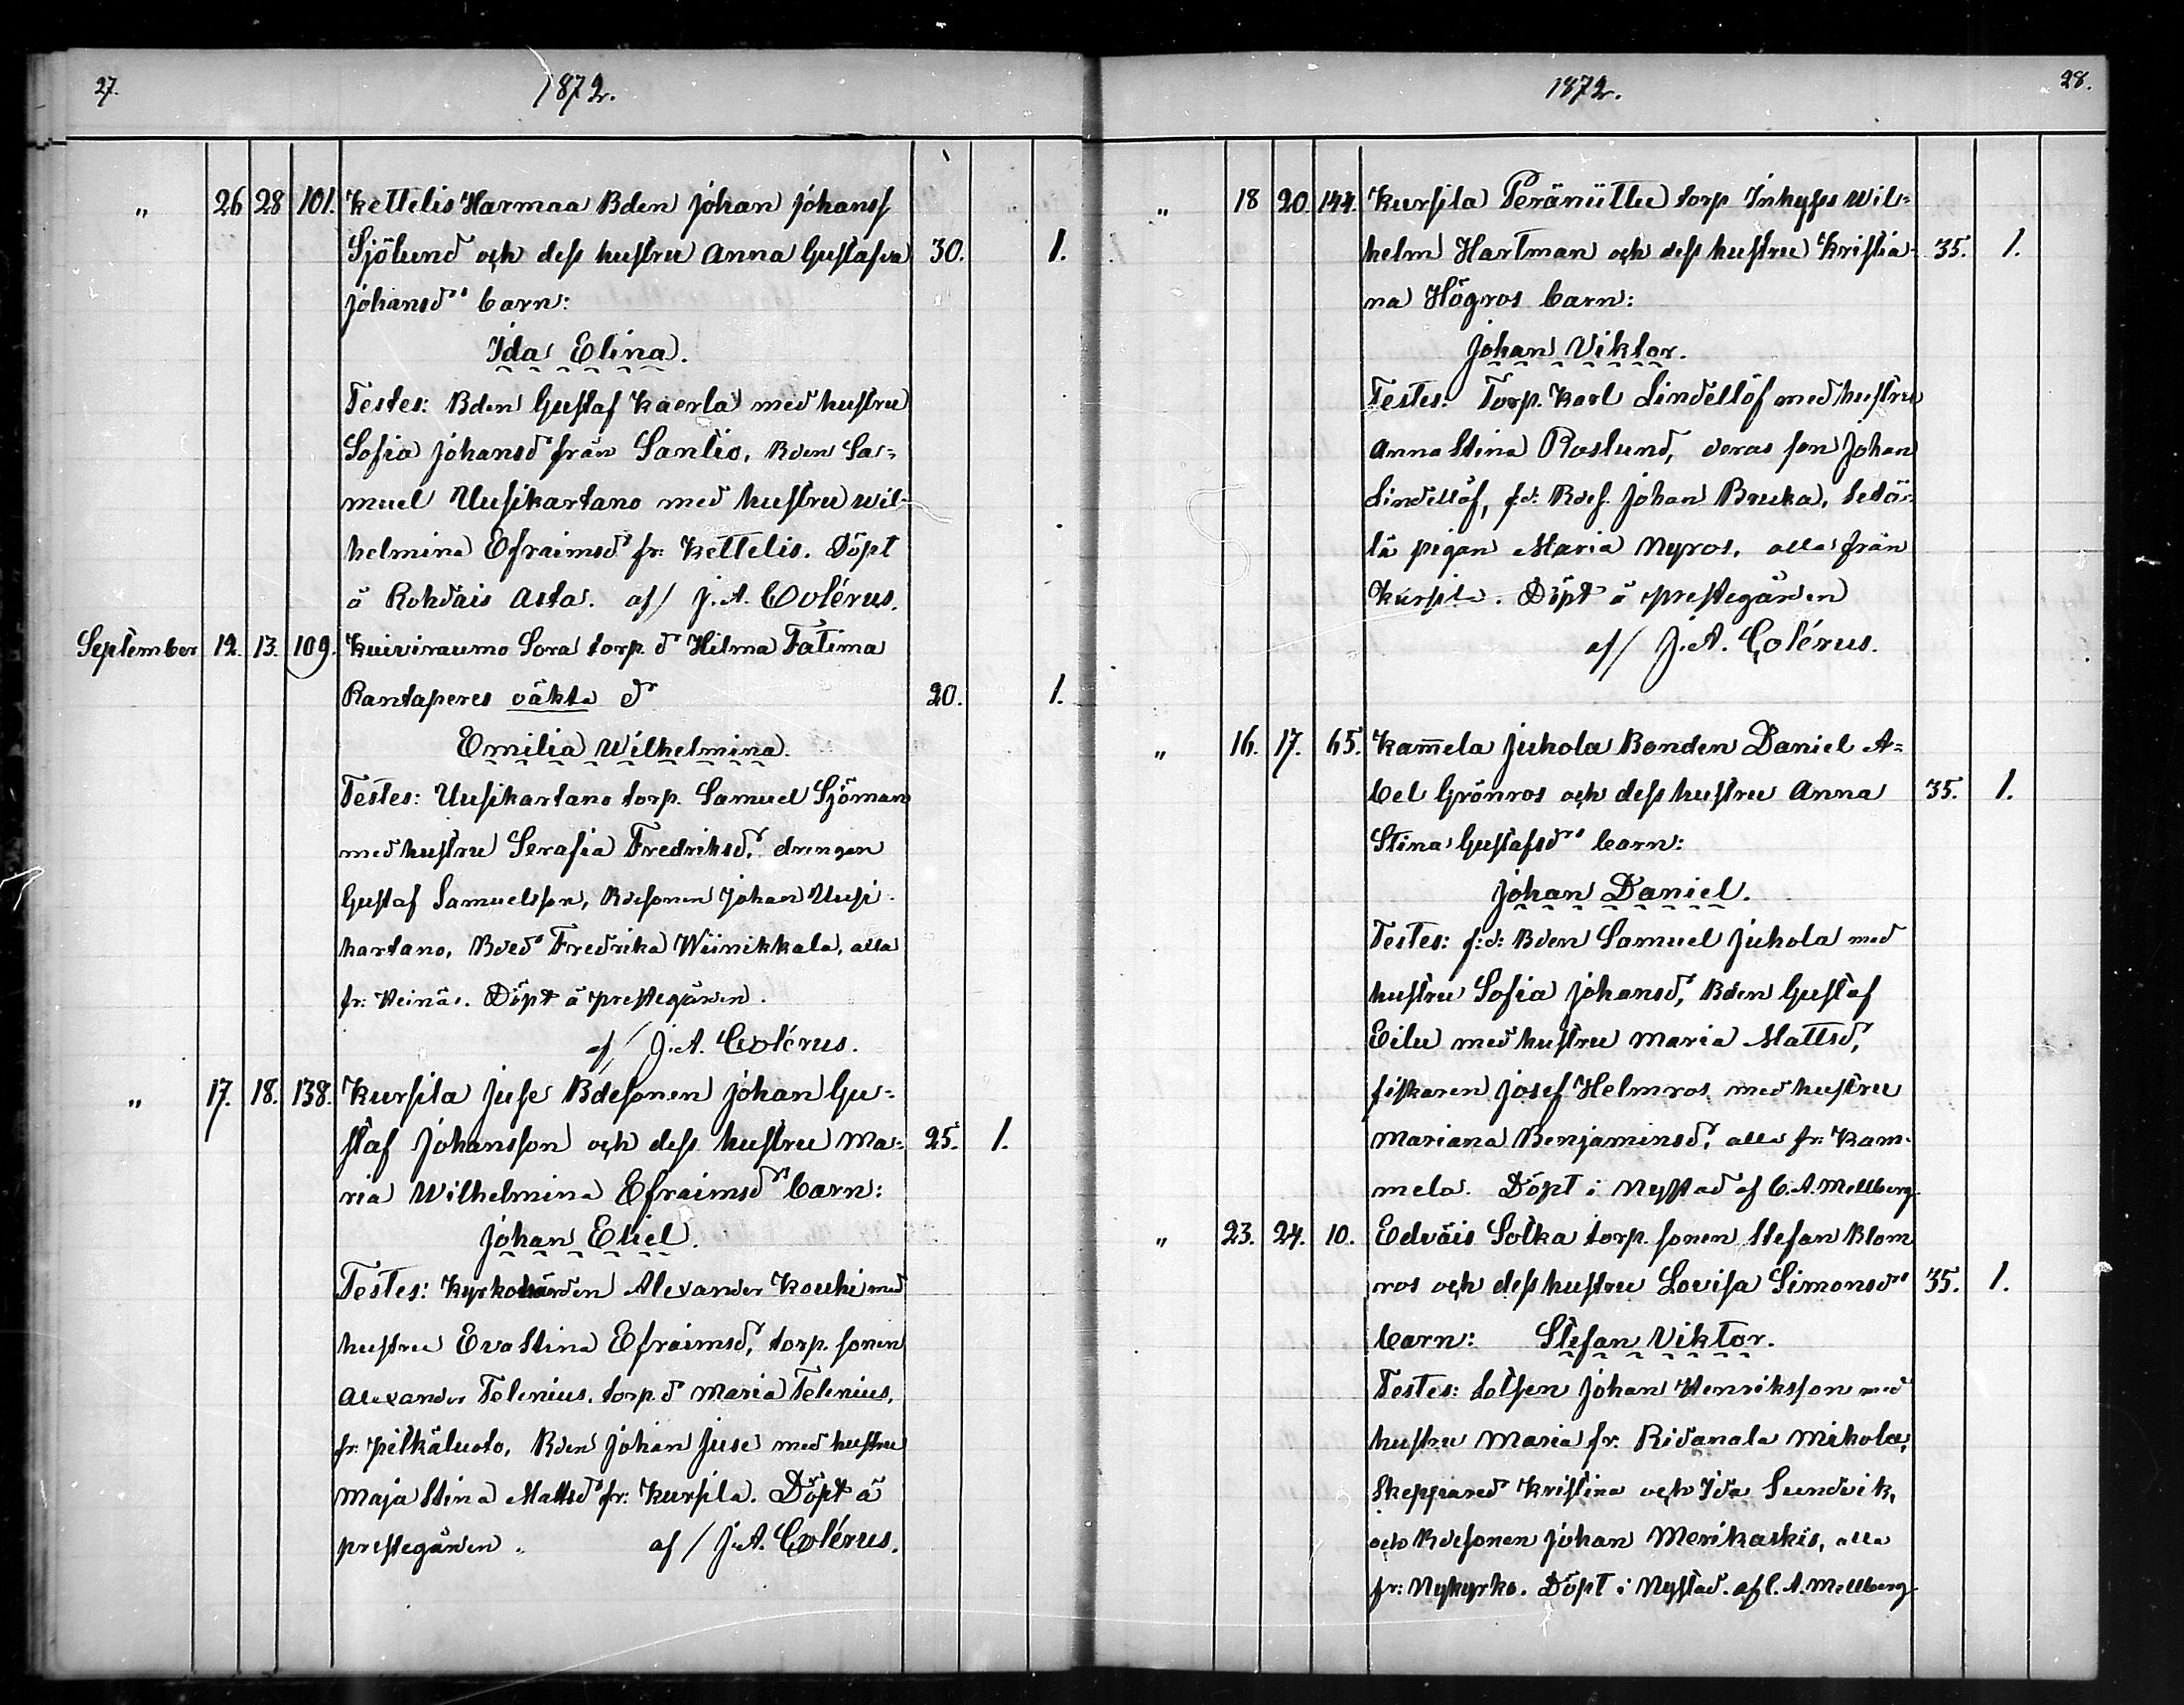 27. 1872.
" 26 28 101. Kettelis Harmaa Bden Johan Johanss
Sjölund och dess hustru Anna Gustafva 30. 1.
Johansdr barn:
Ida Elina.
Testes: Bden Gustaf Kaerla med hustru
Sofia Johansdr från Santio, Bden Sa=
muel Uusikartano med hustru Wil-
helmina Efraimsdr fr: Kettelis. Döpt
å Rohdais Asta. af/ J. A. Colérus.
September 12. 13. 109. Kuiviraumo Sora torp. dr Hilma Fatima
Rantaperes oäkta dr 20. 1.
Emilia Wilhelmina.
Testes: Uusikartano torp. Samuel Sjöman
med hustru Serafia Fredriksdr, drengen
Gustaf Samuelsson, Bdesonen Johan Uusi-
kartano, Bdedr Fredrika Wiinikkala, alla
fr: Heinäs. Döpt å prestegården.
af/ J. A. Colérus.
" 17. 18. 138. Kursila Juse Bdesonen Johan Gu=
staf Johansson och dess hustru Ma= 25. 1.
ria Wilhelmina Efraimsdr barn:
Johan Eliel.
Testes: Kyrkovärden Alexander Kouhi med
hustru Eva Stina Efraimsdr, torp. sonen
Alexander Telenius, torp. dr Maria Telenius,
fr: Pitkäluoto, Bden Johan Juse med hustru
Maja Stina Mattsdr fr: Kursila. Döpt å
prestegården. af/ J. A. Colérus.
1872. 28.
" 18 20. 144. Kursila Peräniittu torp Inhyses Wil=
helm Hartman och dess hustru Kristia- 35. 1.
na Högros barn:
Johan Viktor.
Testes: Torp. Karl Lindellöf med hustru
Anna Stina Roslund, deras son Johan
Lindellöf, f.d. Johan Bruka,
pigan Maria Nyros, alla från
Kursila. Döpt å prestegården
af/ J. A. Colérus.
" 16. 17. 65. Kam̄ela Juhola Bonden Daniel A=
bel Grönros och dess hustru Anna 35. 1.
Stina Gustafsdr barn:
Johan Daniel.
Testes: f:d: Bden Samuel Juhola med
hustru Sofia Johansdr, Bden Gustaf
Eilu med hustru Maria Mattsdr,
fiskaren Josef Helmros med hustru
Mariana Benjaminsdr, alla fr: Kam-
mela. Döpt i Nystad af C. A. Mellberg.
" 23. 24. 10. Edväis Solka torp. sonen Stefan Blom
ros och dess hustru Lovisa Simonsdr 35. 1.
barn: Stefan Viktor.
Testes: Lotsen Johan Henriksson med
hustru Maria fr. Ridanala Mikola,
Skeppared Kristina och Ida Sundvik,
och Bdesonen Johan Merikaskis, alla
fr: Nykyrko. Döpt i Nystad. af C. A. Mellberg